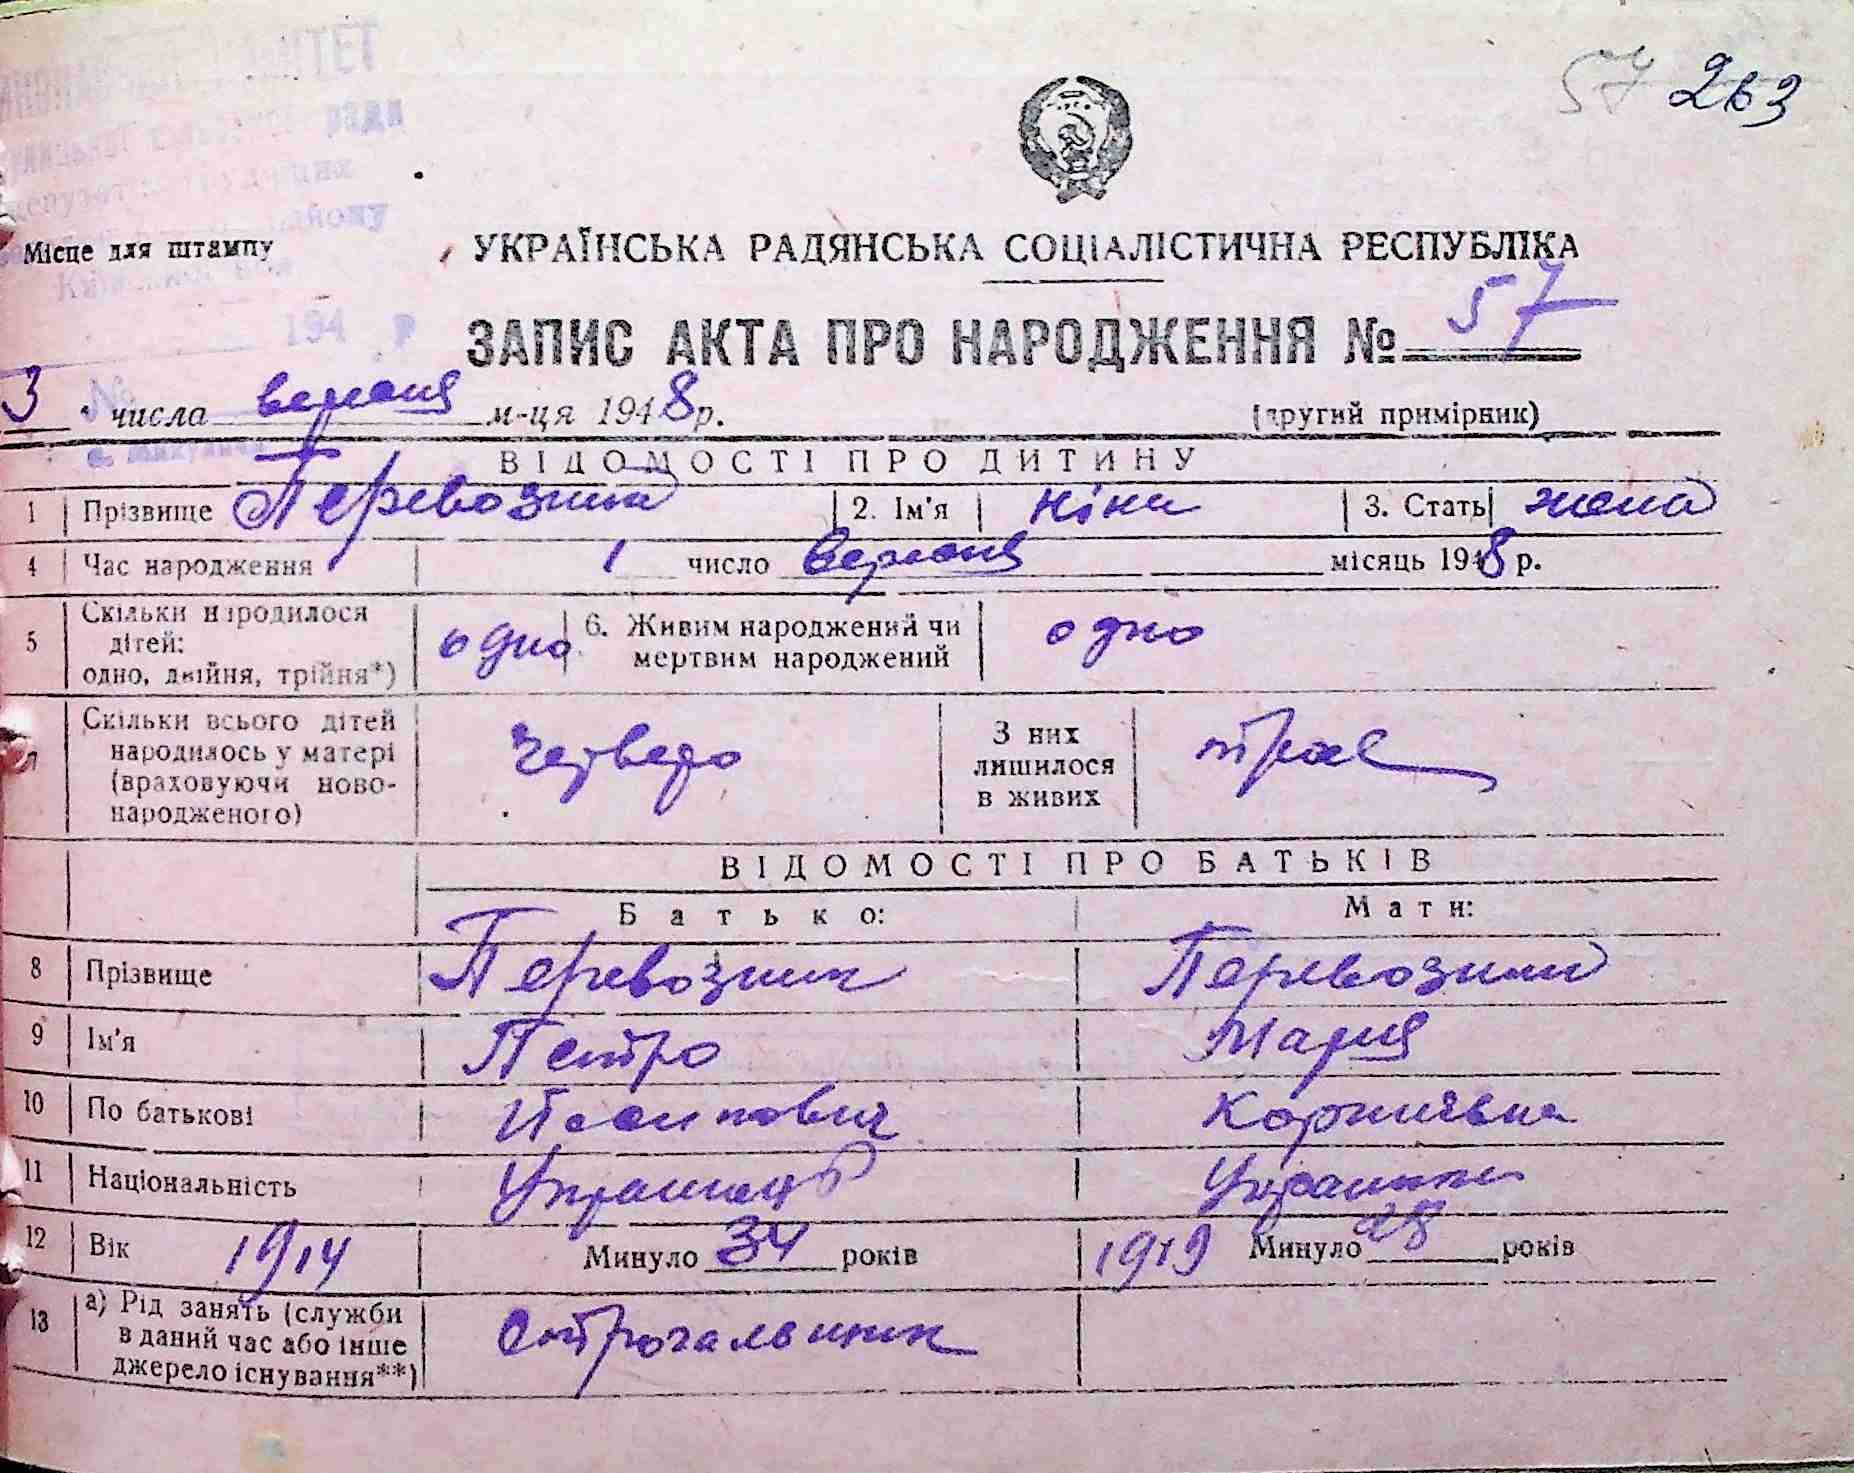 57 263
КОМІТЕТ
ради
депутатів трудящих
району
Місце для штампу
УКРАЇНСЬКА РАДЯНСЬКА СОЦІАЛІСТИЧНА РЕСПУБЛІКА
194 р
ЗАПИС АКТА ПРО НАРОДЖЕННЯ № 57
3 числа вересня м-ця 1948 р.
(другий примірник)
№
ВІДОМОСТІ ПРО ДИТИНУ
1 Прізвище Перевозник 2. Ім'я Ніна 3. Стать жона
4 Час народження 1 число вересня місяць 1948 р.
5 Скільки народилося дітей: одно, двійня, трійня*) одно 6. Живим народжений чи мертвим народжений одно
7 Скільки всього дітей народилось у матері (враховуючи ново-народженого) четверо З них лишилося в живих троє
ВІДОМОСТІ ПРО БАТЬКІВ
Батько: Мати:
8 Прізвище Перевозник Перевозник
9 Ім'я Петро Мария
10 По батькові Йосипович Корніївна
11 Національність Українець Українка
12 Вік 1914 Минуло 34 років 1919 Минуло 28 років
13 а) Рід занять (служби в даний час або інше джерело існування**) Строгальщик